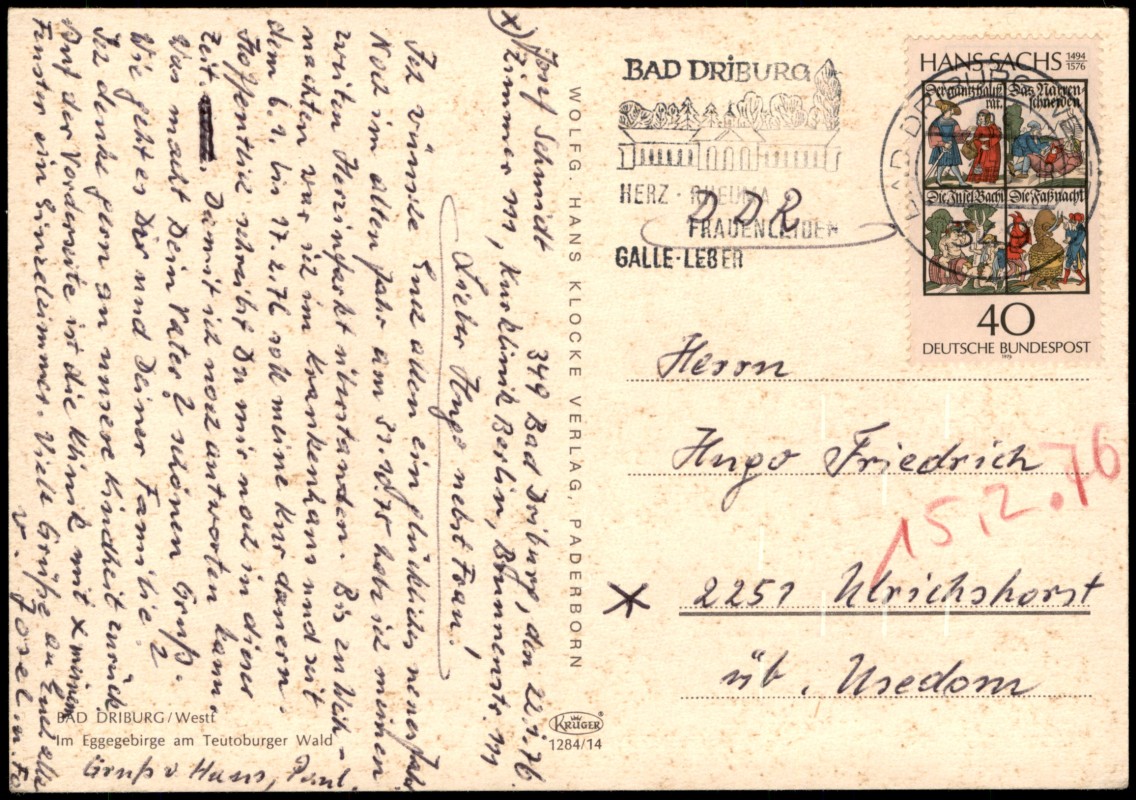 Josef Schmidt 349 Bad Driburg, den 22.1.76
x) Zimmer 111, Kurklinik Berlin, Brunnenstr. 11
Lieber Hugo nebst Frau!
Ich wünsche Euch allen ein glückliches neues Jahr
Noch im alten Jahr am 31.10.75 hab ich meinen
zweiten Herzinfarkt überstanden. Bis zu Weih-
nachten war ich im Krankenhaus und seit
dem 6.1. bis 17.2.76 soll meine Kur dauern.
Hoffentlich schreibst Du mir noch in dieser
Zeit. Damit ich noch antworten kann.
Was macht Dein Vater? schönen Gruß.
Wie geht es Dir und Deiner Familie?
Ich denke gern an unsere Kindheit zurück
Auf der Vorderseite ist die Klinik mit x meinem
Fenster ein Einzelzimmer. Viele Grüße an Euch alle
v. Josef u. Fa
Gruß v Hans, Paul.
BAD DRIBURG/Westf
Im Eggegebirge am Teutoburger Wald
WOLFG. HANS KLOCKE VERLAG, PADERBORN
KRÜGER
1284/14
BAD DRIBURG
HERZ · RHEUMA
FRAUENLEIDEN
GALLE-LEBER
DDR
BAD DRIBURG
HANS SACHS 1494
1576
Der gantz haus-
rat.
Das Narren-
schneyden
Die Insel Bachi
Die Faßnacht
40
DEUTSCHE BUNDESPOST
1976
Herrn
Hugo Friedrich
15.2.76
2251 Ulrichshorst
üb. Usedom